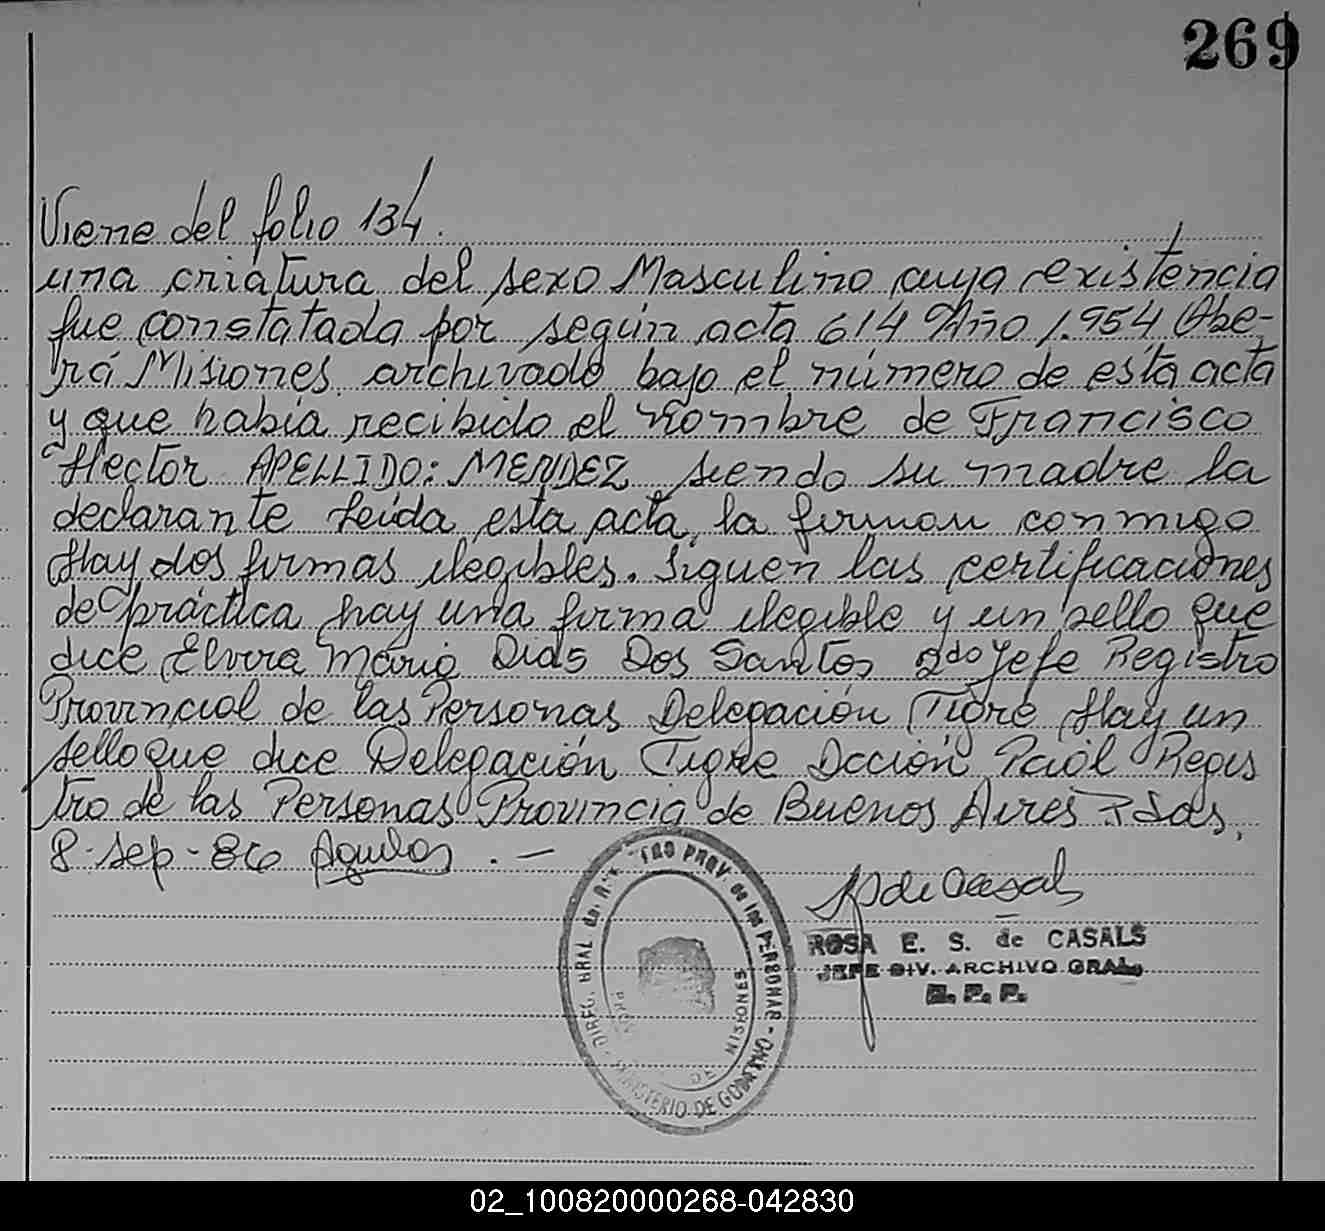 269
Viene del folio 134.
una criatura del sexo Masculino cuya existencia
fue constatada por según acta 614 Año 1.954 Obe-
rá Misiones archivado bajo el número de esta acta
y que había recibido el nombre de Francisco
Hector APELLIDO: MENDEZ siendo su madre la
declarante Leída esta acta, la firman conmigo
Hay dos firmas ilegibles. Siguen las certificaciones
de práctica hay una firma ilegible y un sello que
dice Elvira María Dias Dos Santos 2do Jefe Registro
Provincial de las Personas Delegación Tigre Hay un
sello que dice Delegación Tigre Dcción Pciál Regis
tro de las Personas Provincia de Buenos Aires
8-sep-86
DIREC. GRAL del REGISTRO PROV. de las PERSONAS - MINISTERIO DE GOBIERNO
MISIONES
ROSA E. S. de CASALS
JEFE DIV. ARCHIVO GRAL.
R. P. P.
02_100820000268-042830